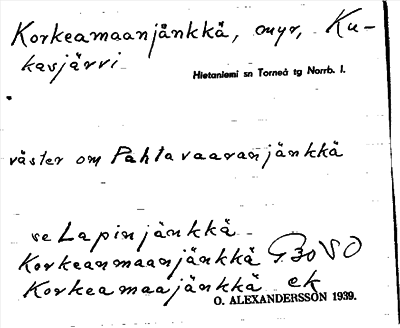 Korkeamaanjänkkä, myr, Ku-
kasjärvi
Hietaniemi sn Torneå tg Norrb. l.
väster om Pahtavaaranjänkkä
se Lapinjänkkä
Korkeanmaanjänkkä G.30 SO
Korkeamaajänkkä ek
O. ALEXANDERSSON 1939.